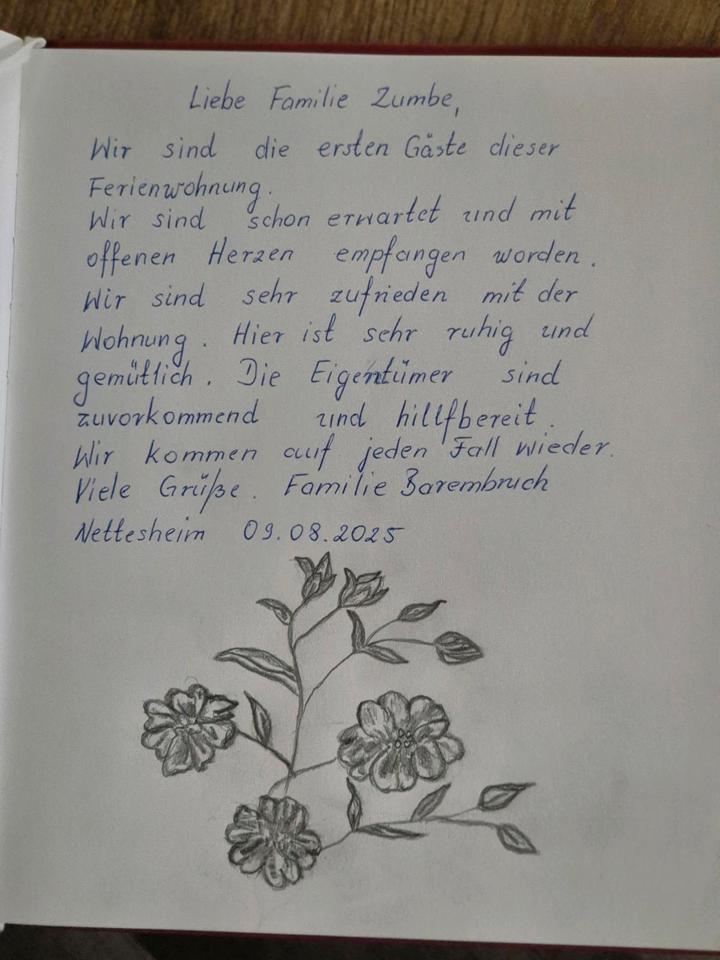 Liebe Familie Zumbe,
Wir sind die ersten Gäste dieser
Ferienwohnung.
Wir sind schon erwartet und mit
offenen Herzen empfangen worden.
Wir sind sehr zufrieden mit der
Wohnung. Hier ist sehr ruhig und
gemütlich. Die Eigentümer sind
zuvorkommend und hillfbereit.
Wir kommen auf jeden Fall wieder.
Viele Grüße. Familie Barembruch
Nettesheim 09.08.2025